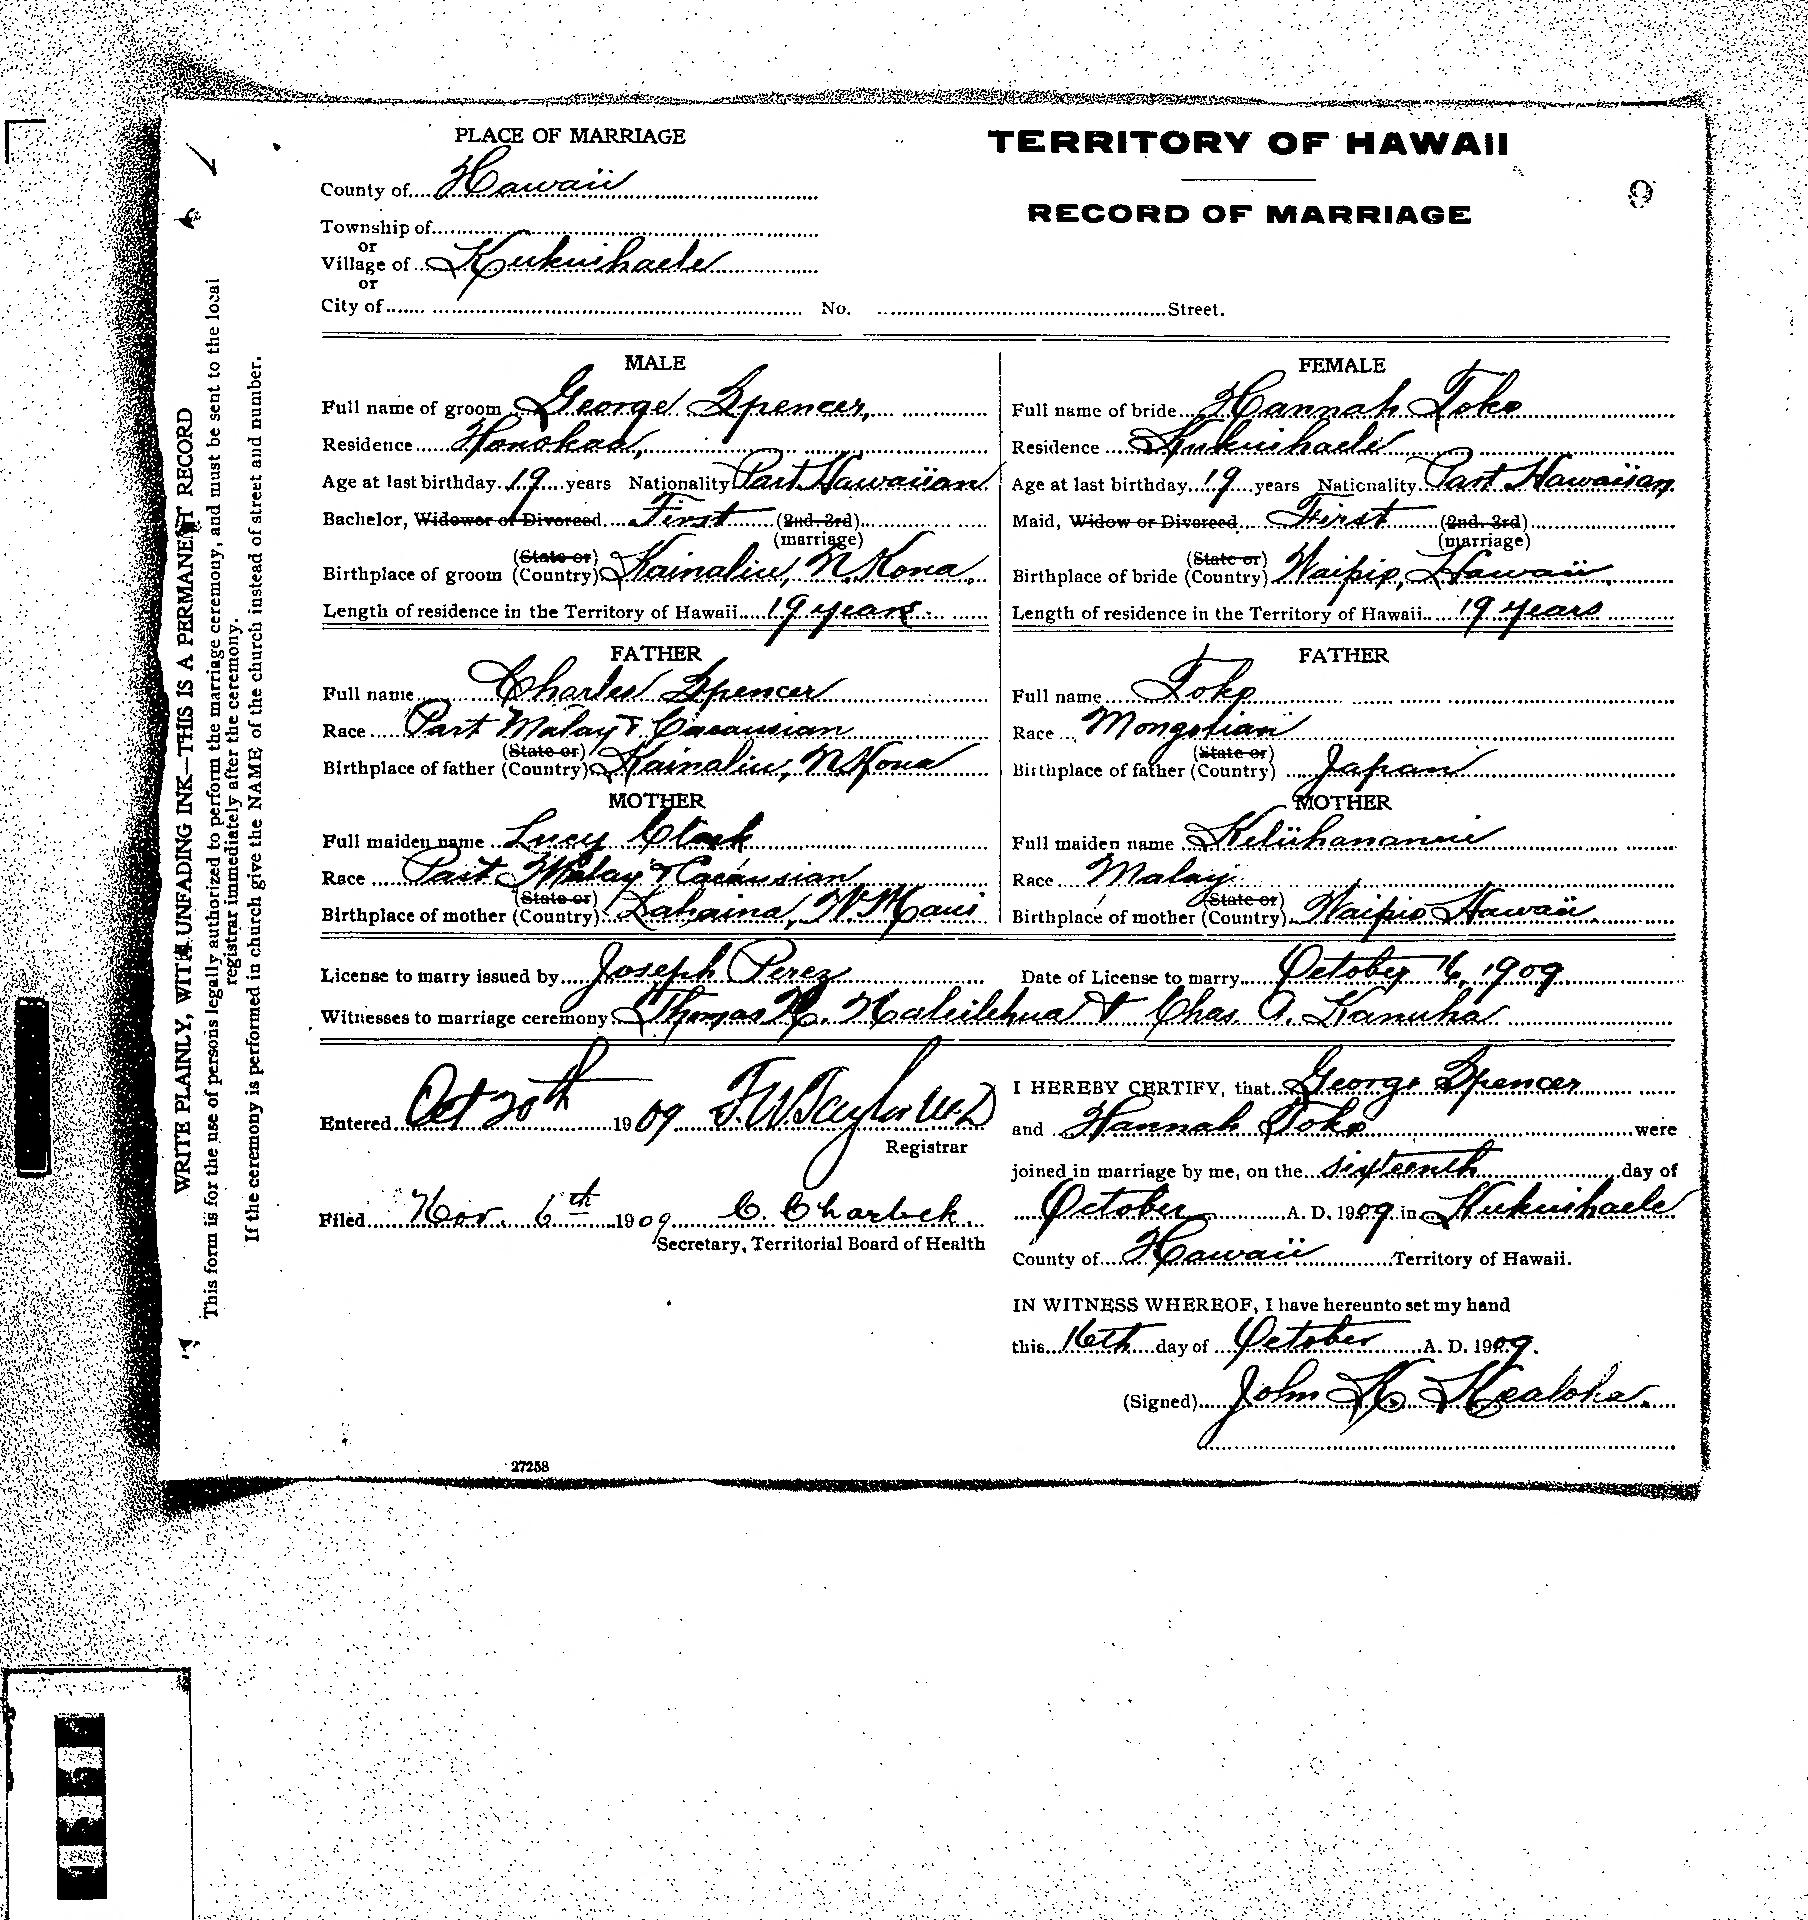 PLACE OF MARRIAGE
TERRITORY OF HAWAII
RECORD OF MARRIAGE
9
County of Hawaii
Township of
or
Village of Kukuihaele
or
City of No. Street.
WRITE PLAINLY, WITH UNFADING INK—THIS IS A PERMANENT RECORD
This form is for the use of persons legally authorized to perform the marriage ceremony, and must be sent to the local
registrar immediately after the ceremony.
If the ceremony is performed in church give the NAME of the church instead of street and number.
MALE
Full name of groom George Spencer,
Residence Honokaa,
Age at last birthday 19 years Nationality Part Hawaiian
Bachelor, Widower or Divorced First (2nd. 3rd)
(marriage)
(State or)
Birthplace of groom (Country) Kainaliu, N. Kona.
Length of residence in the Territory of Hawaii 19 years.
FATHER
Full name Charles Spencer
Race Part Malay & Cacausian
(State or)
Birthplace of father (Country) Kainaliu, N Kona
MOTHER
Full maiden name Lucy Clark
Race Part Malay & Cacausian
(State or)
Birthplace of mother (Country) Lahaina, W. Maui
FEMALE
Full name of bride Hannah Toko
Residence Kukuihaele
Age at last birthday 19 years Nationality Part Hawaiian
Maid, Widow or Divorced First (2nd. 3rd)
(marriage)
(State or)
Birthplace of bride (Country) Waipio, Hawaii.
Length of residence in the Territory of Hawaii 19 years
FATHER
Full name Toko
Race Mongolian
(State or)
Birthplace of father (Country) Japan
MOTHER
Full maiden name
Race Malay
(State or)
Birthplace of mother (Country) Waipio Hawaii.
License to marry issued by Joseph Perez Date of License to marry October 16, 1909
Witnesses to marriage ceremony Thomas H. Haleilehua & Chas. A. Kanuha
Entered Oct 20th 1909 F. W. Taylor M.D
Registrar
Filed Nov. 6th 1909 C. Charlock.
Secretary, Territorial Board of Health
I HEREBY CERTIFY, that George Spencer
and Hannah Toko were
joined in marriage by me, on the sixteenth day of
October A. D. 1909 in Kukuihaele
County of Hawaii Territory of Hawaii.
IN WITNESS WHEREOF, I have hereunto set my hand
this 16th day of October A. D. 1909.
(Signed) John K. Kealoha.
27258